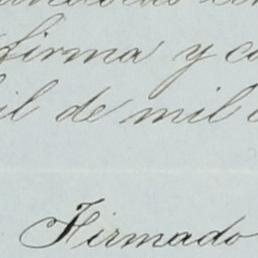 firma y
il de mil
Firmado